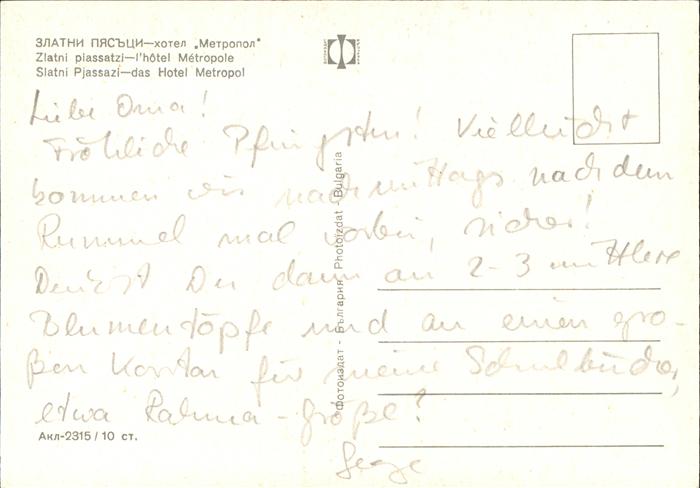 ЗЛАТНИ ПЯСЪЦИ—хотел „Метропол"
Zlatni piassatzi—l'hôtel Métropole
Slatni Pjassazi—das Hotel Metropol
Liebe Oma!
Fröhliche Pfingsten! Vielleicht
kommen wir nachmittags nach dem
Rummel mal vorbei, sicher!
Denkst Du dann an 2-3 mittlere
Blumentöpfe und an einen gro-
ßen Karton für meine Schulbücher,
etwa Rahma-größe?
Фотоиздат - България - Photoizdat - Bulgaria
Акл-2315/10 ст.